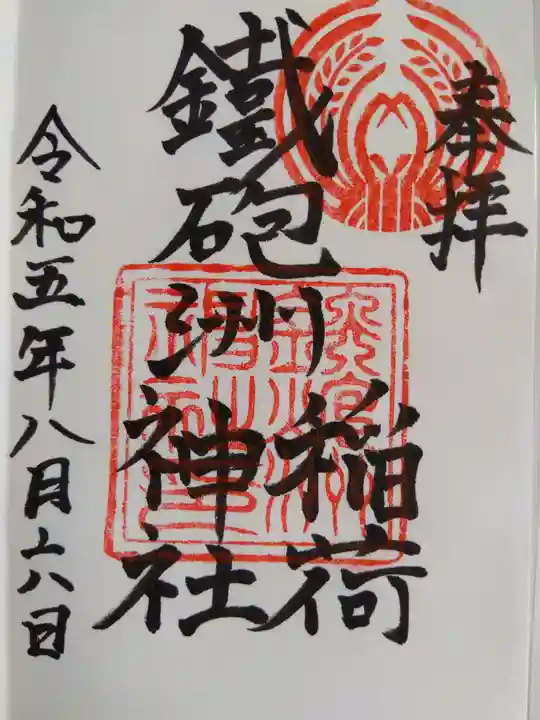 奉拝
鐵砲洲稲荷
神社
令和五年八月十八日